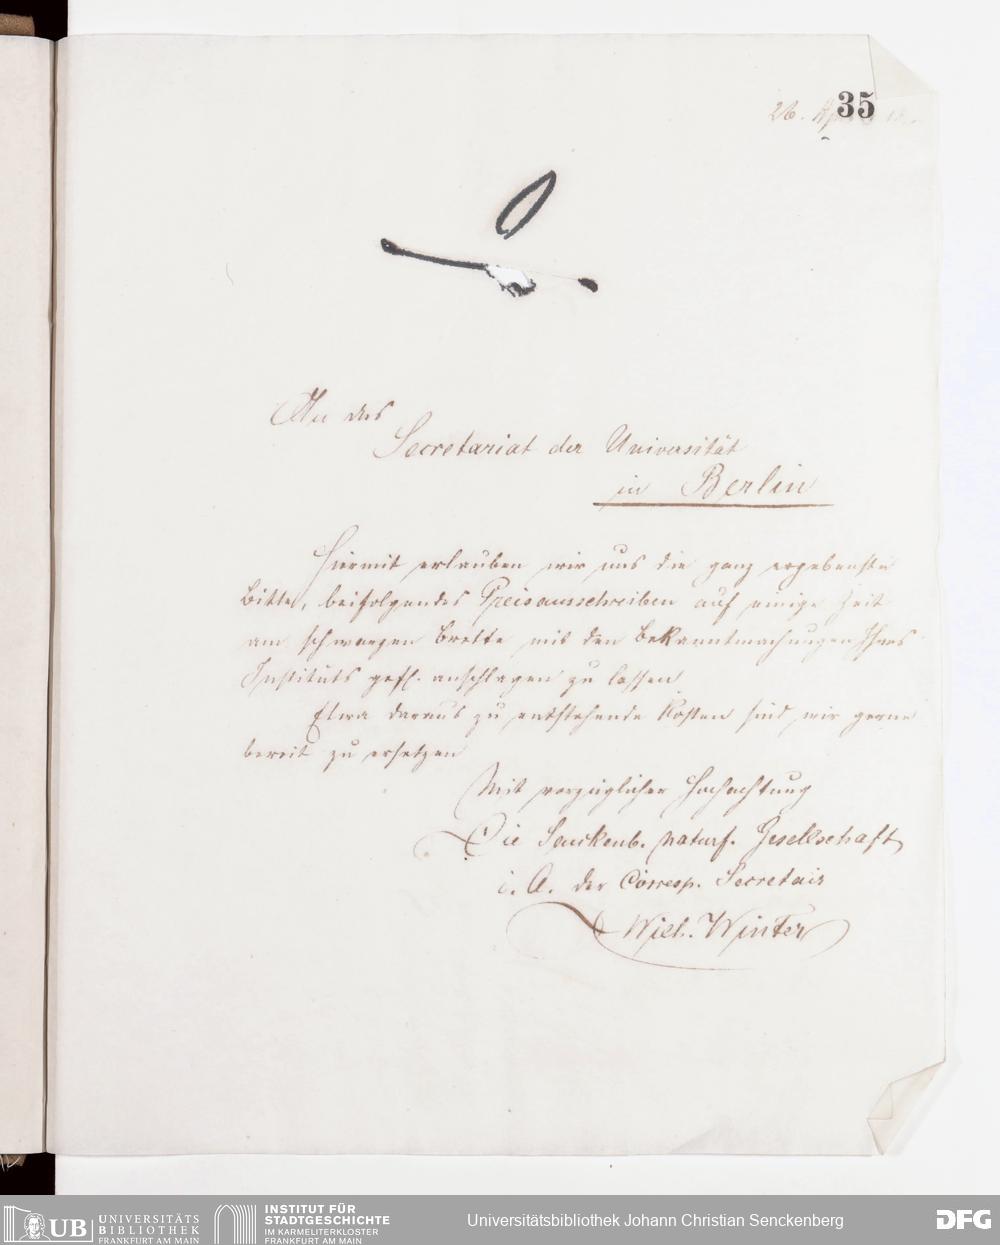 35
26. Apr
An das
Secretariat der Universität
in Berlin
Hiermit erlauben wir uns die ganz ergebenste
Bitte, beifolgendes Preisausschreiben auf einige Zeit
am schwarzen Brette mit den Bekanntmachungen Ihres
Instituts gefl. anschlagen zu lassen
Etwa daraus zu entstehende Kosten sind wir gerne
bereit zu ersetzen
Mit vorzüglicher Hochachtung
Die Senckenb. naturf. Gesellschaft
i. A. der Corresp. Secretair
Wilh. Winter
UB UNIVERSITÄTS
BIBLIOTHEK
FRANKFURT AM MAIN
INSTITUT FÜR
STADTGESCHICHTE
IM KARMELITERKLOSTER
FRANKFURT AM MAIN
Universitätsbibliothek Johann Christian Senckenberg
DFG